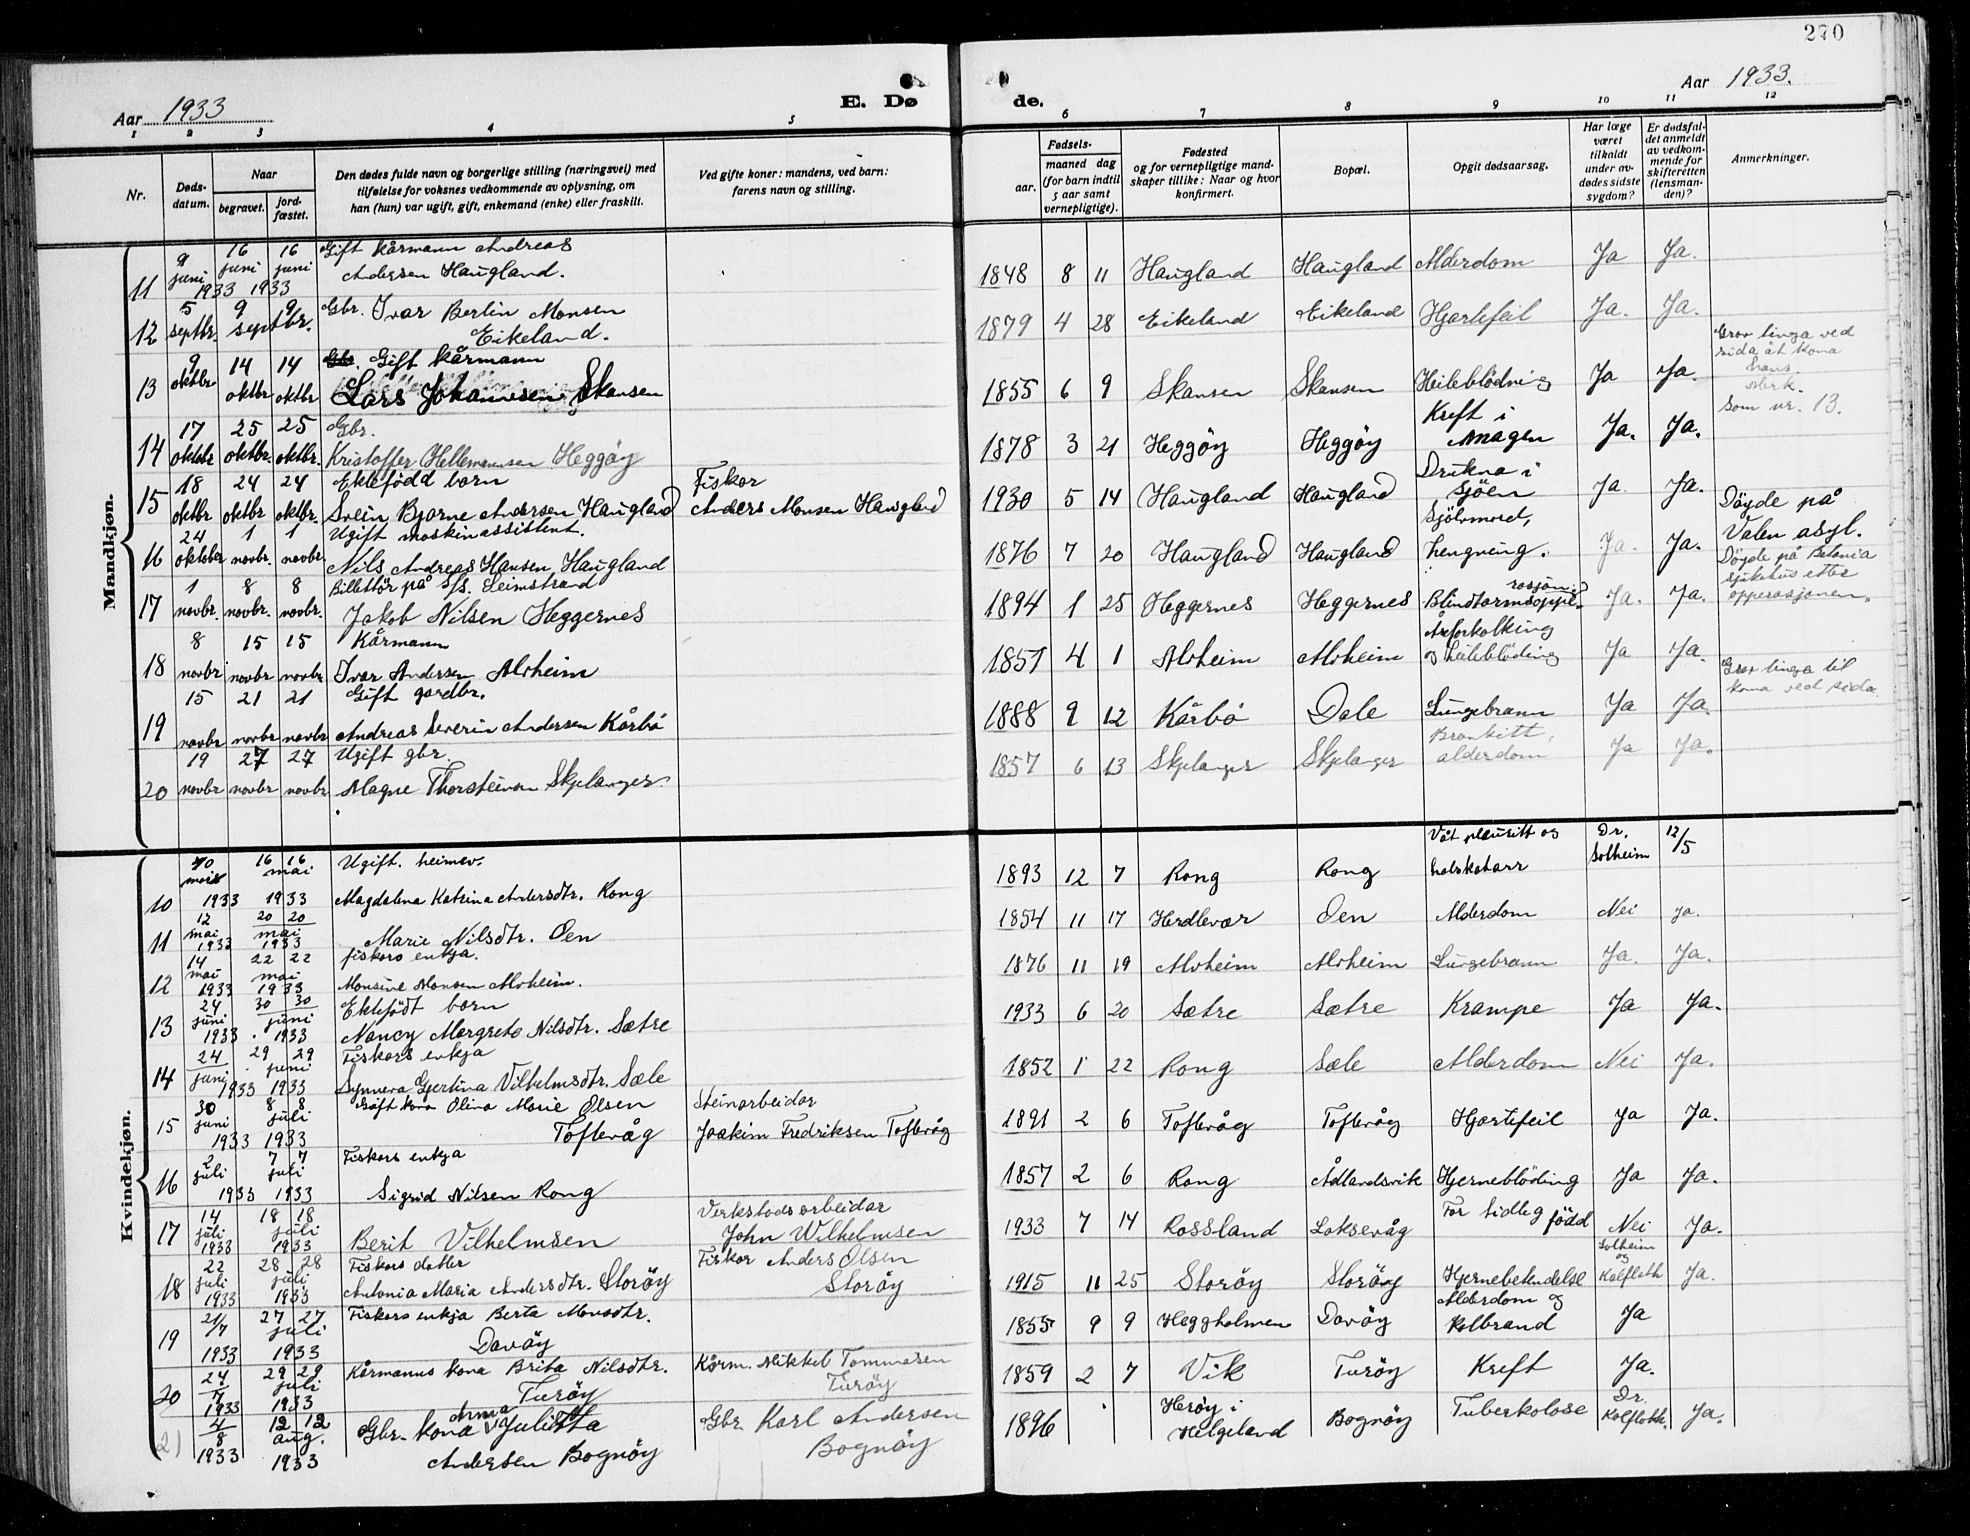 270
Aar 1933
E. Dø de.
Aar 1933.
1 2 3 4 5 6 7 8 9 10 11 12
Nr.
Døds-
datum.
Naar
begravet.
jord-
fæstet.
Den dødes fulde navn og borgerlige stilling (næringsvei) med
tilføielse for voksnes vedkommende av oplysning, om
han (hun) var ugift, gift, enkemand (enke) eller fraskilt.
Ved gifte koner: mandens, ved barn:
farens navn og stilling.
Fødsels-
aar.
maaned dag
(for barn indtil
5 aar samt
vernepligtige).
Fødested
og for vernepligtige mand-
skaper tillike: Naar og hvor
konfirmert.
Bopæl.
Opgit dødsaarsag.
Har læge
været
tilkaldt
under av-
dødes sidste
sygdom?
Er dødsfal-
det anmeldt
av vedkom-
mende for
skifteretten
(lensman-
den)?
Anmerkninger.
Mandkjøn.
9 16 16 Gift kårmann Andreas
juni juni juni Andersen Haugland.
11 1933 1933 1848 8 11 Haugland Haugland Alderdom Ja Ja.
5 9 9 Gbr. Ivar Berlin Monsen
12 septbr. septbr. Eikeland. 1879 4 28 Eikeland Eikeland Hjartefeil Ja. Ja.
9 14 14 Gbr. Gift kårmann
13 oktbr oktbr oktbr Lars Johannesen Skansen 1855 6 9 Skansen Skansen Heileblödning Ja Ja.
Grav linga ved
sida åt kona
hans
Merk.
som nr. 13.
17 25 25 Gbr.
14 oktobr oktbr. oktbr. Kristoffer Hellemansen Heggöy 1878 3 21 Heggöy Heggöy Kreft i
magen Ja. Ja.
18 24 24 Ektefödd born Fiskar
15 oktbr oktbr oktbr. Svein Bjarne Andersen Haugland Anders Monsen Haugland 1930 5 14 Haugland Haugland Drukna i
Sjöen Ja. Ja.
24 1 1 Ugift maskinassistent.
16 oktober novbr. novbr. Nils Andreas Hansen Haugland 1876 7 20 Haugland Haugland Sjölvmord,
hengning. Ja. Ja. Döyde på
Valen asyl.
1 8 8 Billettör på S/S. Leimstrand
17 novbr. novbr. novbr. Jakob Nilsen Heggernes 1894 1 25 Heggernes Heggernes Blindtarmsoppe-
rasjon Ja. Ja. Döyde på Betania
sjukehus etter
opperasjonen.
8 15 15 Kårmann
18 novbr novbr novbr Ivar Andersen Alvheim 1851 4 1 Alvheim Alvheim Åreforkalking
og heileblöding Ja Ja.
15 21 21 Gift gardbr.
19 novbr novbr novbr Andreas Severin Andersen Kårbö 1888 9 12 Kårbö Dale Lungebrann Ja Ja. Grav linga til
kona ved sida.
19 27 27 Ugift gbr.
20 novbr novbr novbr Magne Thorsteinsen Skjelanger 1857 6 13 Skjelanger Skjelanger Bronkitt,
alderdom Ja Ja.
Kvindekjøn.
10 16 16 Ugift. heimev.
mai mai
10 1933 1933 Magdalena Katrina Andersdtr. Rong 1893 12 7 Rong Rong Våt pleuritt og
halskatarr Dr.
Solheim 12/5
12 20 20
mai mai
11 1933 1933 Marie Nilsdtr. Oen 1854 11 17 Herdlevær Oen Alderdom Nei ja.
14 22 22 fiskars enkja.
mai mai
12 1933 1933 Monsine Monsen Alvheim. 1876 11 19 Alvheim Alvheim Lungebrann Ja. Ja.
24 30 30 Ektefödt born
juni juni
13 1933 1933 Nancy Margrete Nilsdtr. Sætre 1933 6 20 Sætre Sætre Krampe Ja Ja.
24 29 29 Fiskars enkja
juni juni
14 1933 1933 Synneva Gjertina Vilhelmsdtr. Sæle 1852 1 22 Rong Sæle Alderdom Nei Ja.
30 8 8 Gift kona Olina Marie Olsen Steinarbeidar
juni juli
15 1933 1933 Toftevåg Joakim Fredriksen Toftevåg 1891 2 6 Toftevåg Toftevåg Hjartefeil Ja Ja.
2 7 7 Fiskars enkja
juli juli
16 1933 1933 Sigrid Nilsen Rong 1857 2 6 Rong Ådlandsvik Hjerneblöding Ja Ja.
14 18 18 Verkstadsarbeidar
juli juli
17 1933 1933 Berit Vilhelmsen John Wilhelmsen 1933 7 14 Rossland Loksevåg For tidleg född Nei Ja.
22 28 28 Fiskars dotter Fiskar Anders Olsen
juli juli
18 1933 1933 Antonia Maria Andersdtr. Storöy Storöy 1915 11 25 Storöy Storöy Hjernebetendelse Solheim
og
Kalfloth Ja.
21/7 27 27 Fiskars enkja Berta Monsdtr.
juli
19 1933 1933 Davöy 1855 9 9 Heggholmen Davöy Alderdom og
kolbrand Ja
24 29 29 Kårmanns kona Brita Nilsdtr. Kårm. Mikkel Tommasen
7 juli
20 1933 1933 Turöy Turöy 1859 2 7 Vik Turöy Kreft Ja.
4 12 12 Gbr. kona Anna Julitta Gbr. Karl Andersen
8 aug.
21 1933 1933 Andersen Bognöy Bognöy 1896 Heröy i
Helgeland Bognöy Tuberkolose Dr.
Kalfloth. Ja.